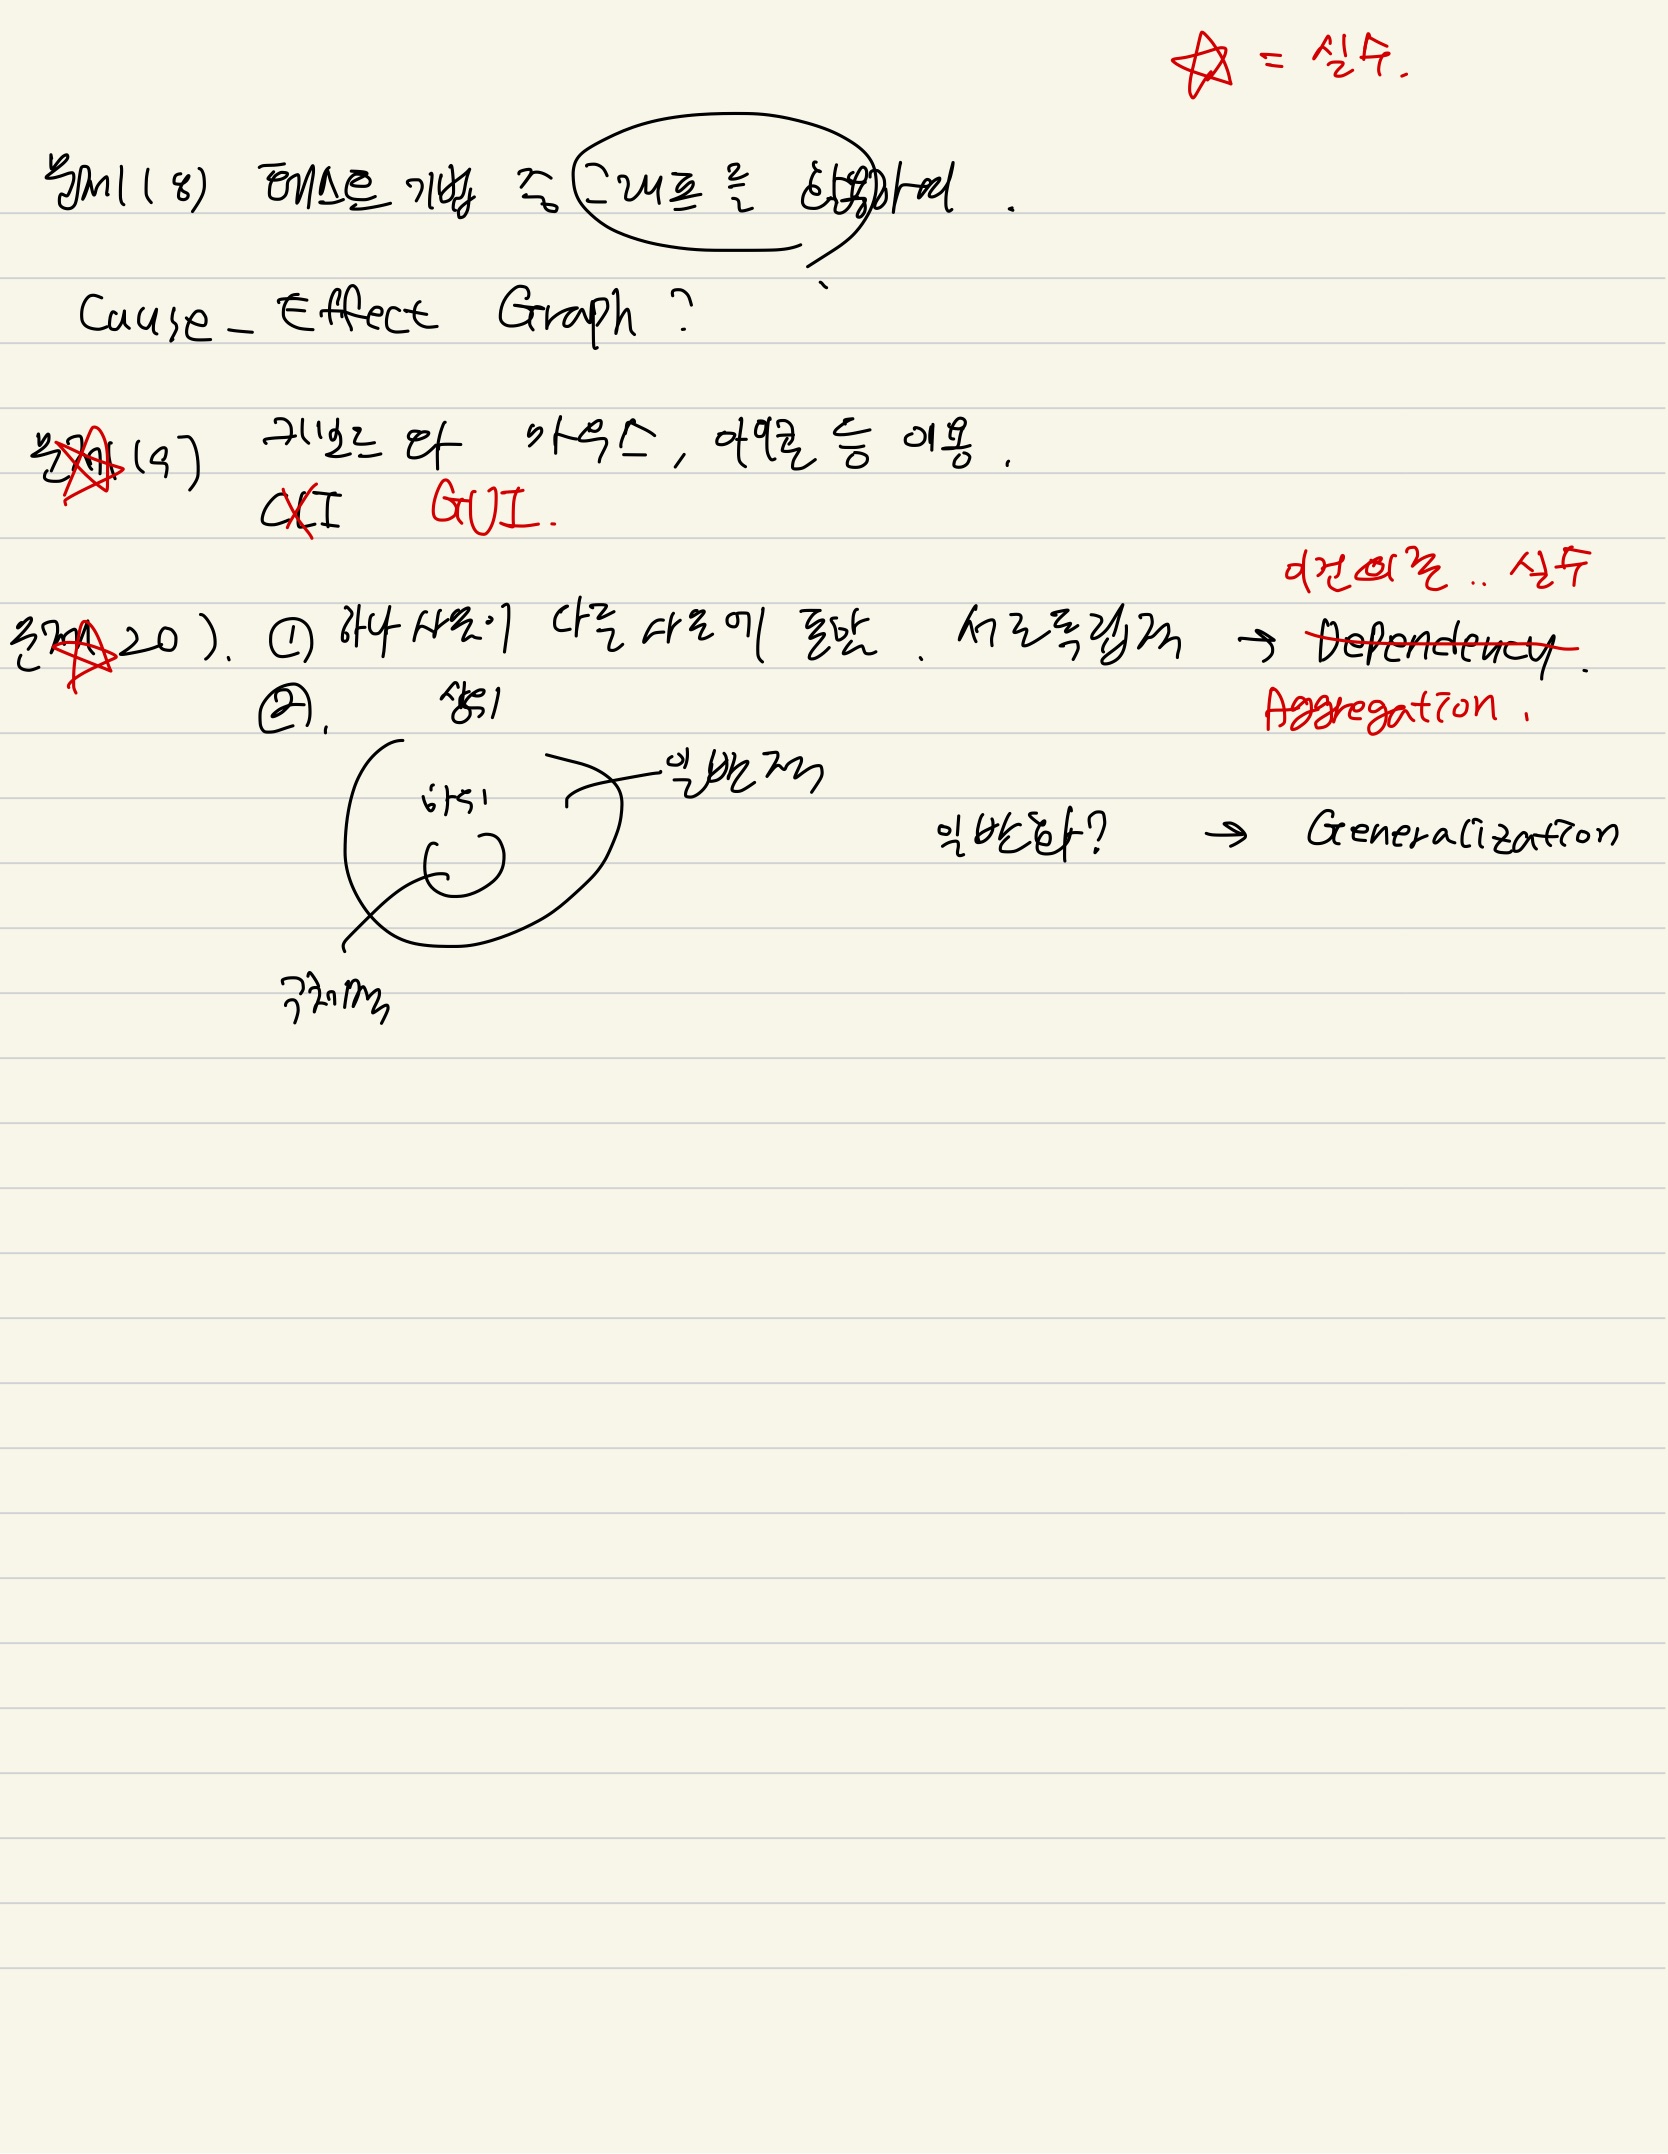 ☆ = 실수.
문제 18) 테스트 기법 중 그래프를 활용하여.
Cause_Effect Graph?
문제 19) 키보드와 마우스, 아이콘 등 이용.
CLI GUI.
이건 .. 실수
문제 20). ① 하나 사물이 다른 사물에 포함. 서로 독립적 → Dependency.
②. 상위 Aggregation.
일반적
하위
일반화? → Generalization
구체적